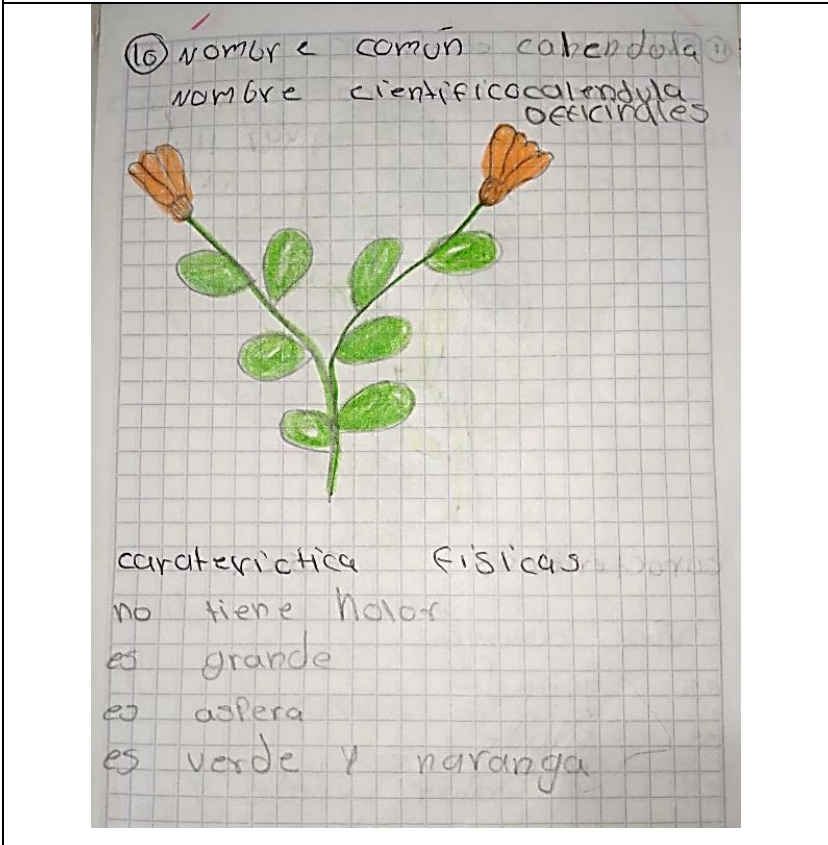 16 Nombre común cabendula
Nombre cientificocalendula
officinales
caraterictica fisicas
no tiene holor
es grande
es aspera
es verde y naranga